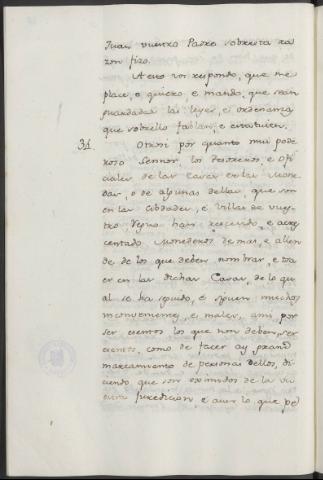 Juan vuestro Padre sobresta ra
zon fizo.
A esto vos respondo, que me
place, e quiero e mando, que sean
guardadas las leyes, e ordenanzas
que sobrello fablan, e estatuien.
31. Otrosi por quanto mui pode
roso Sennor, los thesoreros, e ofi
ciales de las casas en las mone
das, o de algunas dellas, que son
en las cibdades, e villas de vues
tro Regno han rescevido, e acre
centado Monederos de mas, e allen
de de los que deben nombrar, e tra
er en las dichas Casas, de lo qu
al se ha seguido, e siguen muchos
inconvenientes, e males, ansi por
ser esentos los que non deben ser
esentos, como de facer ay grand
de personas dellos, di
ciendo que son eximidos de la vu
estra Juredicion e aver lo que pe